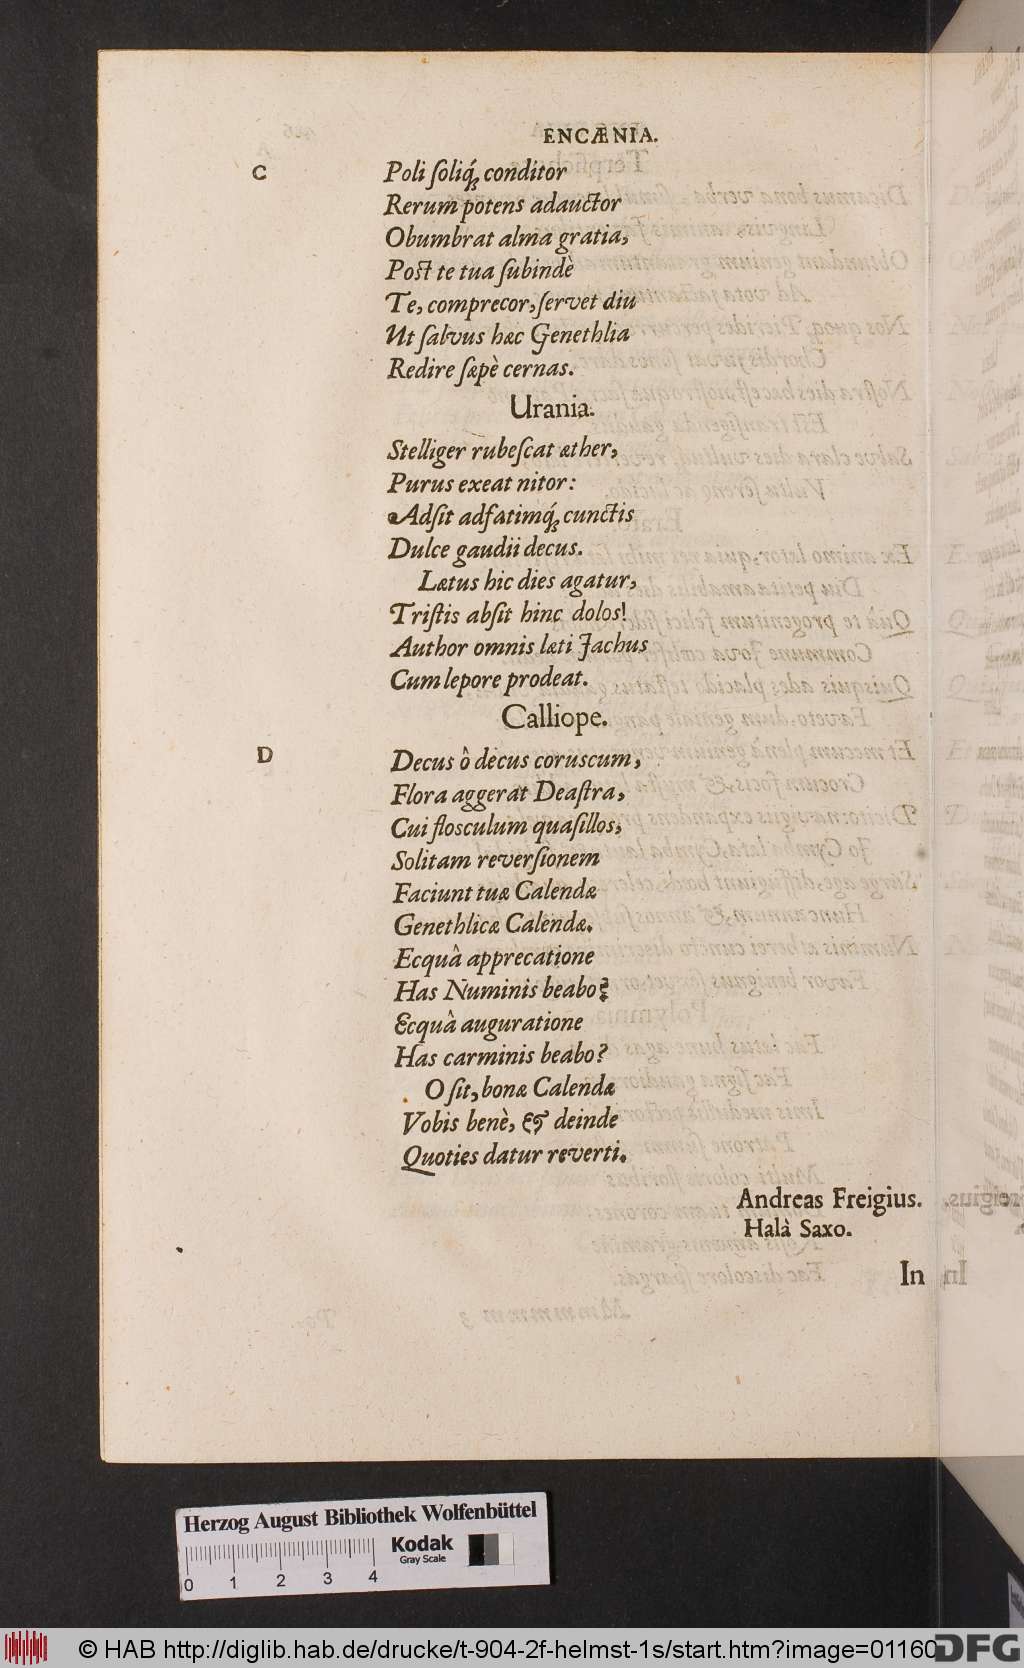 ENCÆNIA.
C
Poli ſoliq́ꝫ conditor
Rerum potens adauctor
Obumbrat alma gratia,
Post te tua ſubindè
Te, comprecor, ſervet diu
Ut ſalvus hæc Genethlia
Redire ſæpè cernas.
Urania.
Stelliger rubeſcat æther,
Purus exeat nitor:
Adſit adfatimq́ꝫ cunctis
Dulce gaudii decus.
Lætus hic dies agatur,
Triſtis abſit hinc dolos!
Author omnis læti Jachus
Cum lepore prodeat.
Calliope.
D
Decus ô decus coruscum,
Flora aggerat Deaſtra,
Cui floſculum quaſillos,
Solitam reverſionem
Faciunt tuæ Calendæ
Genethlicæ Calendæ.
Ecquâ apprecatione
Has Numinis beabo?
Ecquâ auguratione
Has carminis beabo?
O ſit, bonæ Calendæ
Vobis benè, & deinde
Quoties datur reverti.
Andreas Freigius.
Halà Saxo.
In
Herzog August Bibliothek Wolfenbüttel
Kodak
Gray Scale
0 1 2 3 4
© HAB http://diglib.hab.de/drucke/t-904-2f-helmst-1s/start.htm?image=01160
DFG